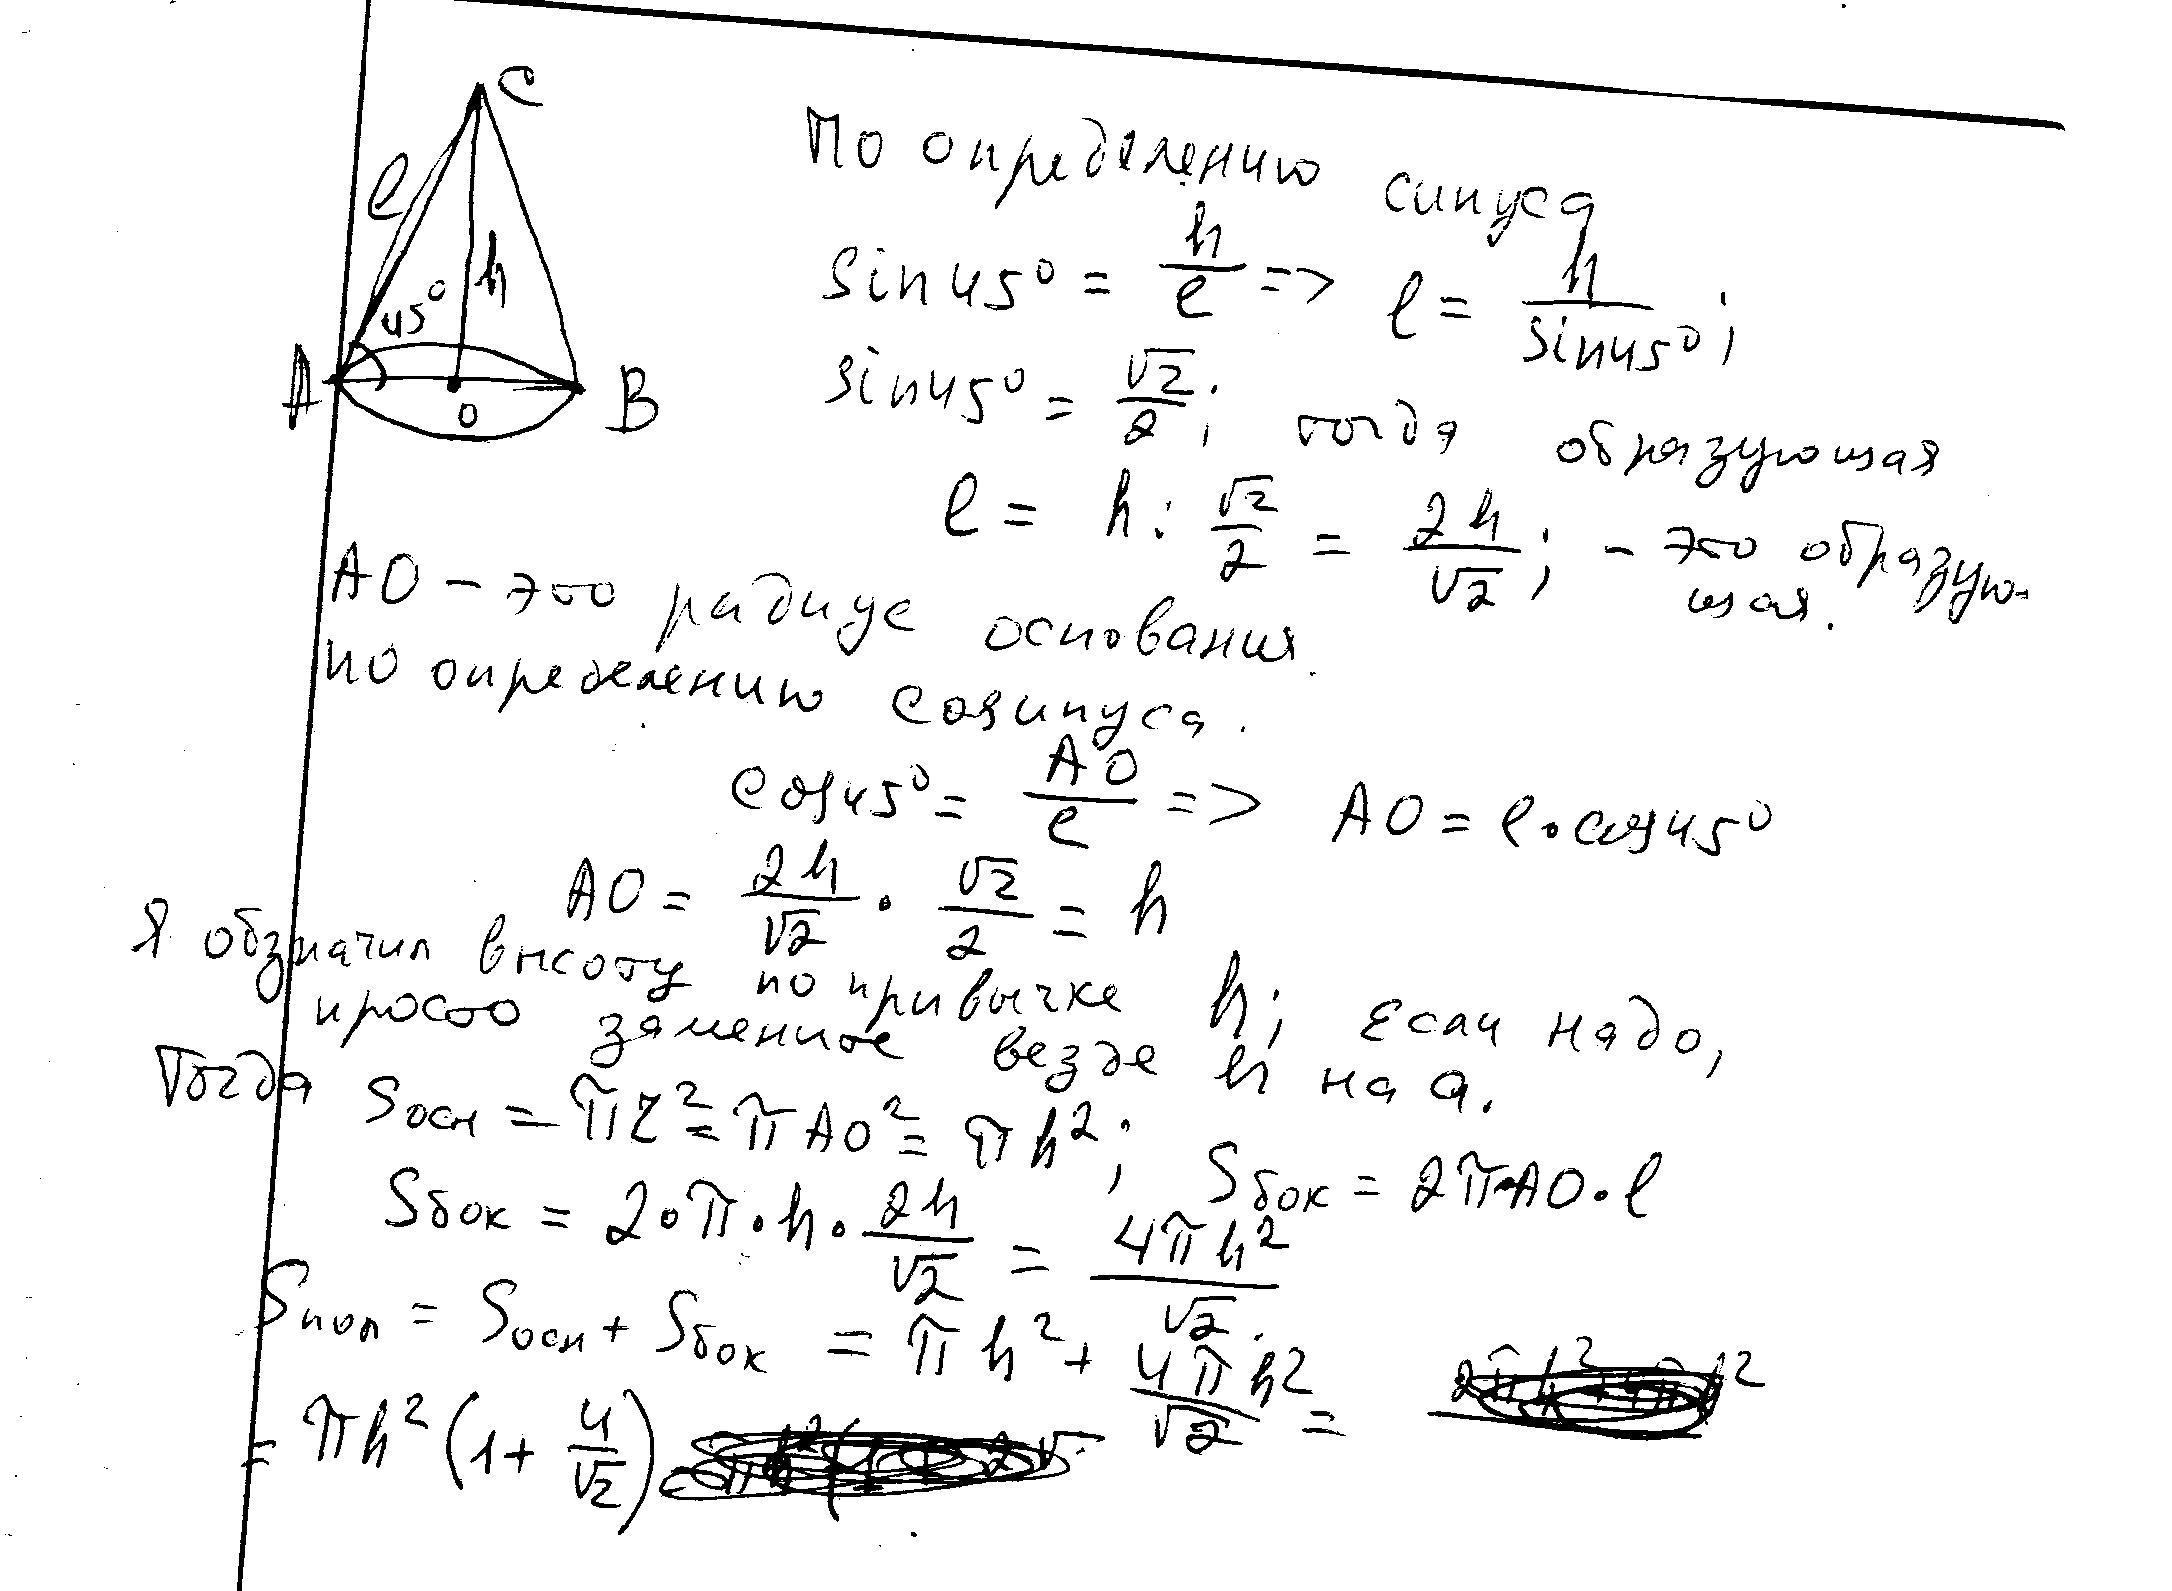 C
l
h
45°
A
O
B
По определению синуса
sin45° = h/l => l = h/sin45°;
sin45° = √2/2; тогда образующая
l = h : √2/2 = 2h/√2; - это образую-
щая.
АО – это радиус основания.
по определению косинуса.
cos45° = AO/l => AO = l·cos45°
AO = 2h/√2 · √2/2 = h
Я обзначил высоту по привычке h; Если надо,
просто замените везде h на a.
Тогда Sосн = πr² = πAO² = πh²; Sбок = 2π·AO·l
Sбок = 2·π·h· 2h/√2 = 4πh²/√2.
Sпол = Sосн + Sбок = πh² + 4πh²/√2 =
= πh²(1 + 4/√2)